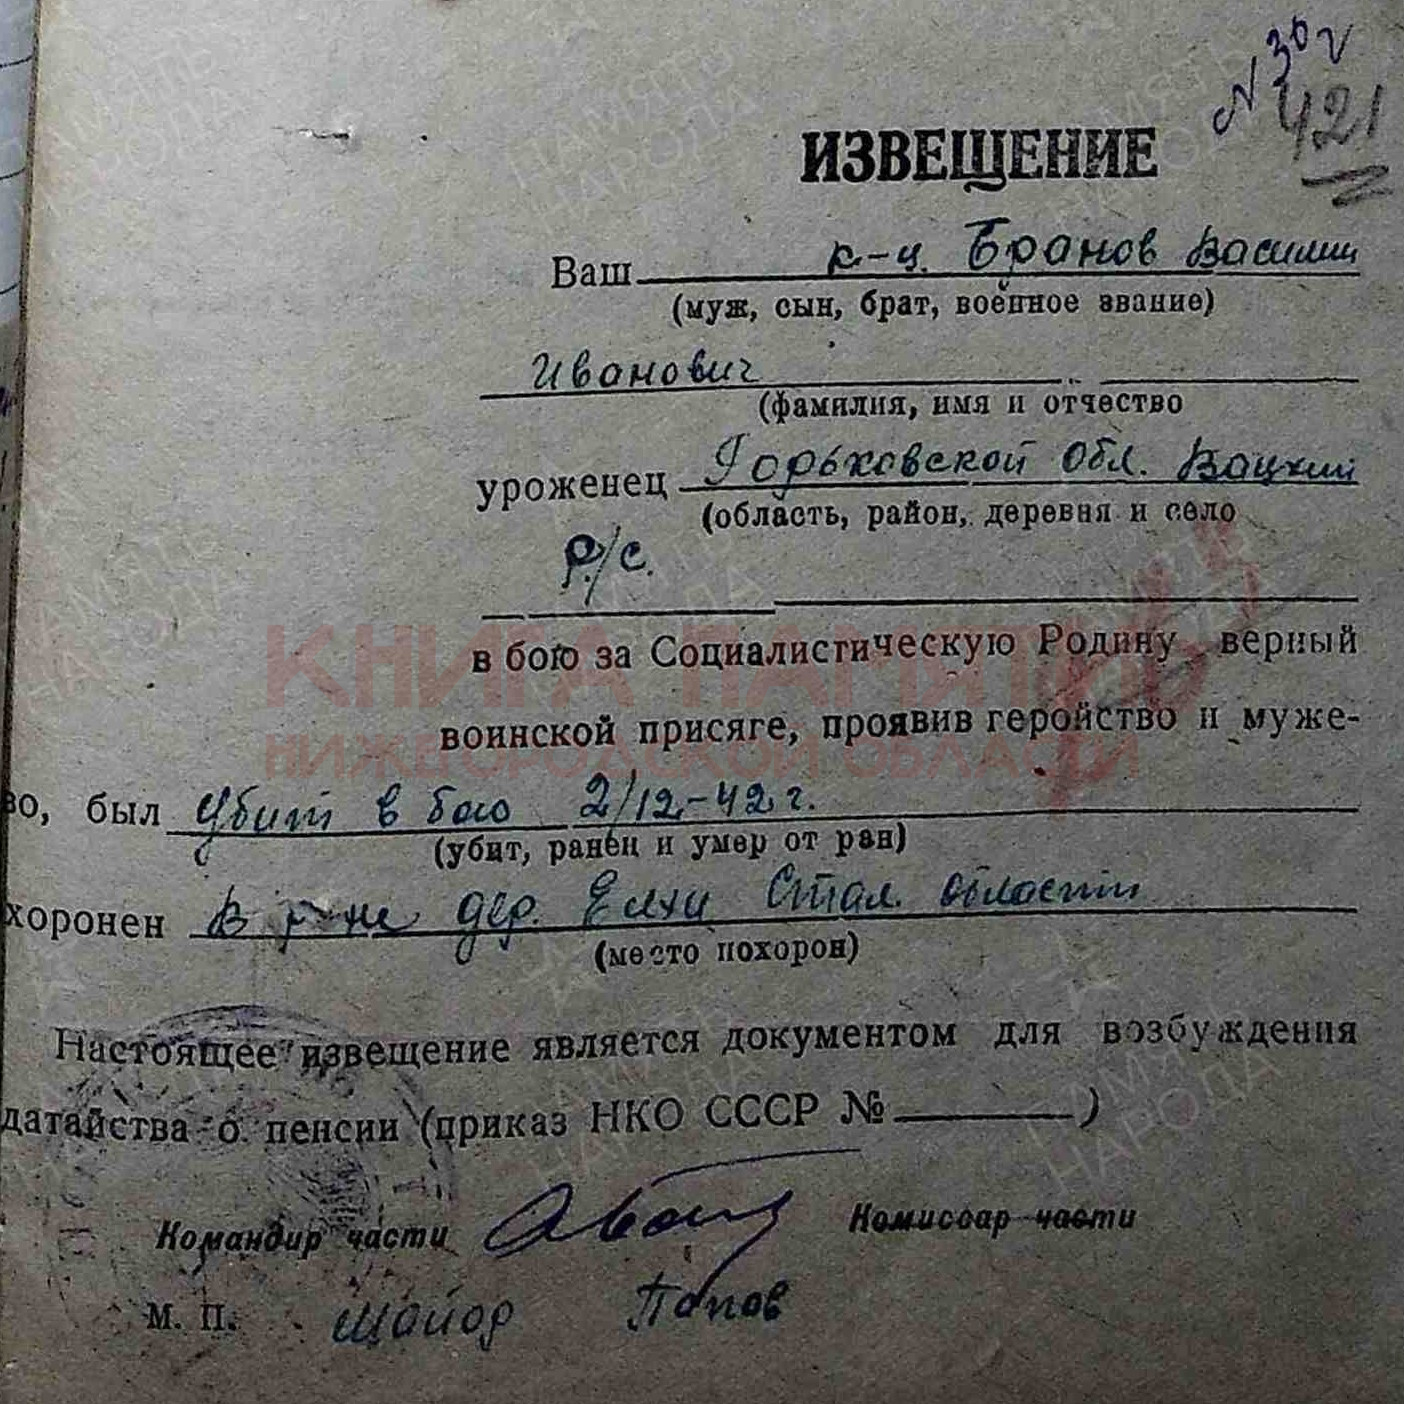 N 30г
421
ИЗВЕЩЕНИЕ
Ваш к-ц. Бранов Василий
(муж, сын, брат, военное звание)
Иванович
(фамилия, имя и отчество
уроженец Горьковской Обл. Вацкий
(область, район, деревня и село
Р/с.
в бою за Социалистическую Родину, верный
воинской присяге, проявив геройство и муже-
во, был убит в бою 2/12-42 г.
(убит, ранен и умер от ран)
хоронен В р-не дер. Елхи Стал. области
(место похорон)
Настоящее извещение является документом для возбуждения
датайства о пенсии (приказ НКО СССР № )
Командир части Комиссар части
М. П. Майор Попов
КНИГА ПАМЯТИ
НИЖЕГОРОДСКОЙ ОБЛАСТИ
ПАМЯТЬ
НАРОДА